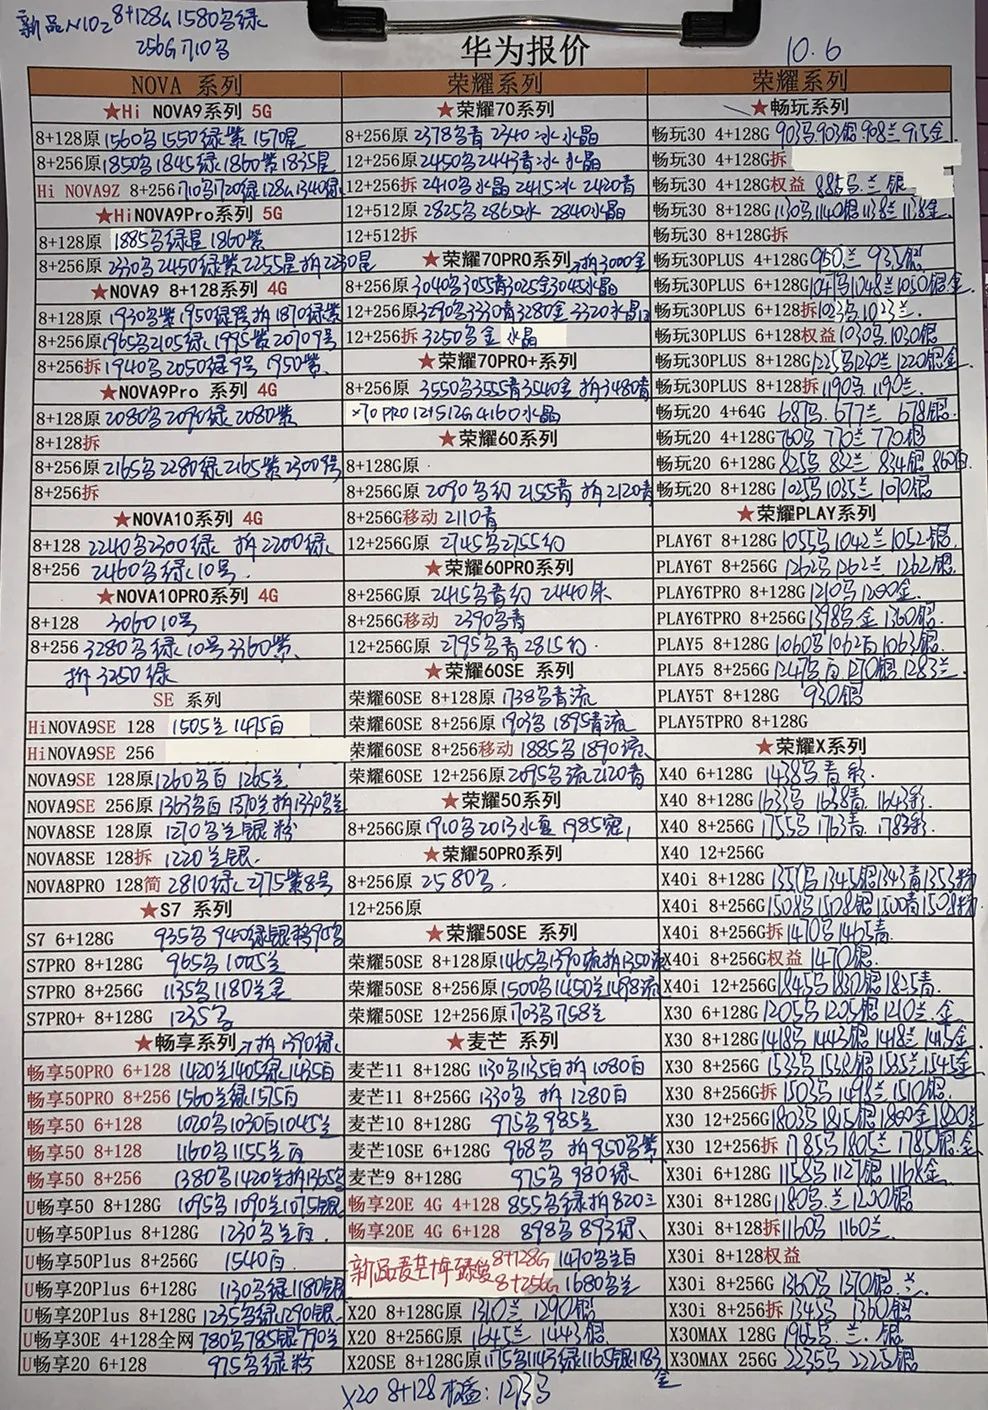 新品N102 8+128G 1580多绿
256G 1710多
华为报价
10.6
NOVA 系列
★Hi NOVA9系列 5G
8+128原 1560多1550绿紫 1570星
8+256原 1850多1845绿1860紫1835星
Hi NOVA9Z 8+256 1710多1720绿128G1340绿
★HiNOVA9Pro系列 5G
8+128原 1885多绿星1860紫
8+256原 2330多2450绿紫2255星拆2230星
★NOVA9 8+128系列 4G
8+128原
8+256原
8+256拆 1940多2050绿9号 1950紫
★NOVA9Pro 系列 4G
8+128原 2080多2095绿2080紫
8+128拆
8+256原 2165多2280绿2165紫23009号
8+256拆
★NOVA10系列 4G
8+128 2240多2300绿 拆2200绿
8+256 2460多绿10号
★NOVA10PRO系列 4G
8+128 3060 10号
8+256 3280多绿10号3360紫
拆3250绿
SE 系列
HiNOVA9SE 128 1505兰1495白
HiNOVA9SE 256
NOVA9SE 128原 1260多白 1265兰
NOVA9SE 256原 1363多白1370兰拆1330多兰
NOVA8SE 128原 1270多兰银粉
NOVA8SE 128拆 1220兰银
NOVA8PRO 128简 2810绿 2775紫8号
★S7 系列
S7 6+128G 935多940绿银
S7PRO 8+128G 965多1005兰
S7PRO 8+256G 1135多1180兰金
S7PRO+ 8+128G 1235多
★畅享系列 拆1390绿
畅享50PRO 6+128 1420兰1405绿1435白
畅享50PRO 8+256 1560兰绿1575白
畅享50 6+128 1020多1030白1045兰
畅享50 8+128 1160多1155兰白
畅享50 8+256 1380多1420兰拆1365多
U畅享50 8+128G 1095多1090兰1075银
U畅享50Plus 8+128G 1230多兰白
U畅享50Plus 8+256G 1540白
U畅享20Plus 6+128G 1130多绿1180银
U畅享20Plus 8+128G 1235多绿1290银
U畅享30E 4+128全网 780多785银790兰
U畅享20 6+128 975多绿粉
荣耀系列
★荣耀70系列
8+256原 2378多青 2340 冰水晶
12+256原 2450多2443青冰 水晶
12+256拆 2410多水晶 2415冰 2420青
12+512原 2825多2865冰 2840水晶
12+512拆
★荣耀70PRO系列 拆3000金
8+256原 3040多3055青3025金3045水晶
12+256原 3290多3330青3280金 3320水晶
12+256拆 3250多金 水晶
★荣耀70PRO+系列
8+256原 3550多3555青3540金 拆3480青
70 PRO 12+512G 4160水晶
★荣耀60系列
8+128G原
8+256G原 2090多幻 2155青 拆2120青
8+256G移动 2110青
12+256G原 2745多2755幻
★荣耀60PRO系列
8+256G原 2415多青幻 2440朱
8+256G移动 2390多青
12+256G原 2795多青2815幻
★荣耀60SE 系列
荣耀60SE 8+128原 1738多青流
荣耀60SE 8+256原 1903多1895青流
荣耀60SE 8+256移动 1885多1890流
荣耀60SE 12+256原 2095多流2120青
★荣耀50系列
8+256G原
★荣耀50PRO系列
8+256原 2580多
12+256原
★荣耀50SE 系列
荣耀50SE 8+128原 1465多1390流拆1350流
荣耀50SE 8+256原 1500多1450兰1498流
荣耀50SE 12+256原 1703多1758兰
★麦芒 系列
麦芒11 8+128G 1130多1135白拆1080白
麦芒11 8+256G 1330多 拆1280白
麦芒10 8+128G 975多985兰
麦芒10SE 6+128G 968多 拆950多紫
麦芒9 8+128G 975多980绿
畅享20E 4G 4+128 855多绿拆820兰
畅享20E 4G 6+128 898多893绿
新品麦芒 8+128G 1470多兰白
8+256G 1680多兰
X20 8+128G原 1310兰 1290银
X20 8+256G原 1645兰 1443银
X20SE 8+128G原 1175多1143绿1165银1183金
X20 8+128权益：1273多
荣耀系列
★畅玩系列
畅玩30 4+128G 903多903银908兰915金
畅玩30 4+128G拆
畅玩30 4+128G权益 885多兰 银
畅玩30 8+128G 1130多1140银1138兰1138金
畅玩30 8+128G拆
畅玩30PLUS 4+128G 950兰 935银
畅玩30PLUS 6+128G 1047多1048兰1050银金
畅玩30PLUS 6+128拆 1023多1023兰
畅玩30PLUS 6+128权益 1030多1030银
畅玩30PLUS 8+128G 1225多1230兰1220银金
畅玩30PLUS 8+128拆 1190多1190兰
畅玩20 4+64G 687多 677兰 678银
畅玩20 4+128G 760多 770兰 770银
畅玩20 6+128G 825多 832兰 834银 860白
畅玩20 8+128G 1025多1035兰 1070银
★荣耀PLAY系列
PLAY6T 8+128G 1055多1042兰1052银
PLAY6T 8+256G 1262多1262兰 1262银
PLAY6TPRO 8+128G 1210多1200金
PLAY6TPRO 8+256G 1398多金1360银
PLAY5 8+128G 1060多1062白1063银
PLAY5 8+256G 1247多白1270银1283兰
PLAY5T 8+128G 930银
PLAY5TPRO 8+128G
★荣耀X系列
X40 6+128G 1438多青彩
X40 8+128G 1633多 1638青 1643彩
X40 8+256G 1755多 1763青 1783彩
X40 12+256G
X40i 8+128G 1350多1345银1343青1353粉
X40i 8+256G 1508多1508银1500青1508粉
X40i 8+256G拆 1470多1465青
X40i 8+256G权益 1470银
X40i 12+256G 1845多1830银1825青
X30 6+128G 1205多1205银1210兰金
X30 8+128G 1418多1443银1418兰1415金
X30 8+256G 1533多1538银1535兰1545金
X30 8+256G拆 1503多 1498兰1510银
X30 12+256G 1803多1815银1800金1820兰
X30 12+256拆 1785多1805兰 1785银金
X30i 6+128G 1158多1127银1168金
X30i 8+128G 1180多兰1200银
X30i 8+128拆 1160多 1160兰
X30i 8+128权益
X30i 8+256G 1360多 1370银兰
X30i 8+256拆 1345多 1360银
X30MAX 128G 1965多 兰 银
X30MAX 256G 2235多 2225银